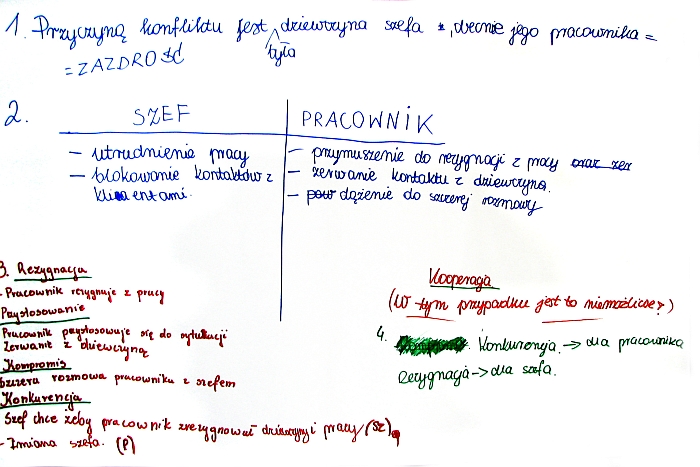 1. Przyczyną konfliktu jest dziewczyna szefa, obecnie jego pracownika =
była
= ZAZDROŚĆ
2. SZEF PRACOWNIK
- utrudnienie pracy
- blokowanie kontaktów z
klientami.
- przymuszenie do rezygnacji z pracy oraz zer
- zerwanie kontaktu z dziewczyną.
- pow dążenie do szczerej rozmowy
3. Rezygnacja
- Pracownik rezygnuje z pracy
Przystosowanie
Pracownik przystosowuje się do sytuacji
Zerwanie z dziewczyną
Kompromis
Szczera rozmowa pracownika z szefem
Konkurencja
Szef chce żeby pracownik zrezygnował - dziewczyny i pracy (sz)
- Zmiana szefa. (P)
Kooperacja
(W tym przypadku jest to niemożliwe?)
4. Konkurencja. → dla pracownika
Rezygnacja → dla szefa.